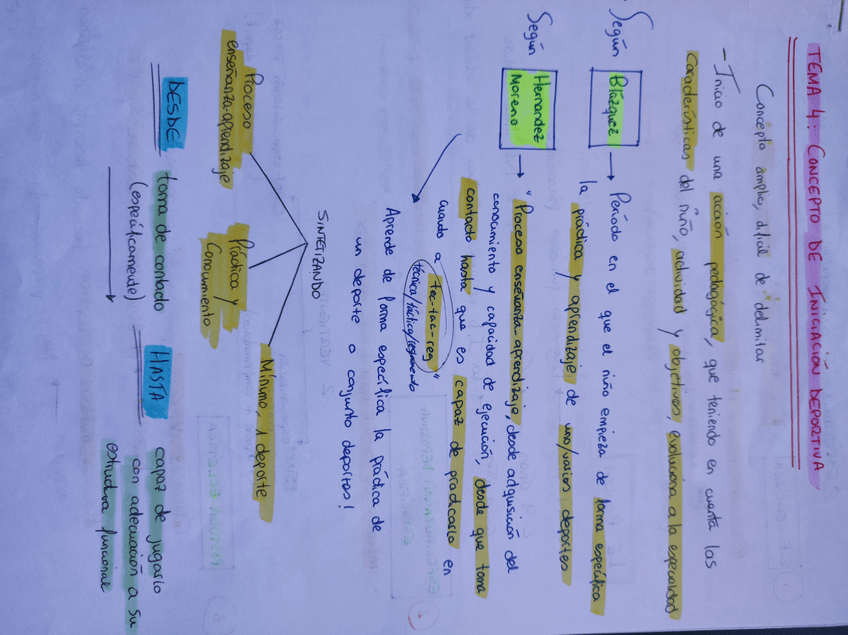 TEMA 4: CONCEPTO DE INICIACIÓN DEPORTIVA
Concepto amplio, difícil de delimitar
- Inicio de una acción pedagógica, que teniendo en cuenta las
características del niño, actividad y objetivos, evoluciona a la especialidad
Según Blázquez → Período en el que el niño empieza de forma específica
la práctica y aprendizaje de uno/varios deportes
Según Hernandez Moreno → "Proceso enseñanza aprendizaje, desde adquisición del
conocimiento y capacidad de ejecución, desde que toma
contacto hasta que es capaz de practicarlo en
cuando a tec-tac-reg"
técnica/táctica/reglamento
Aprende de forma específica la práctica de
un deporte o conjunto deportes!
SINTETIZANDO
Proceso
enseñanza-aprendizaje
Práctica y
Conocimiento
Mínimo, 1 deporte
DESDE toma de contacto
(específicamente)
HASTA capaz de jugarlo
con adecuación a su
estructura funcional